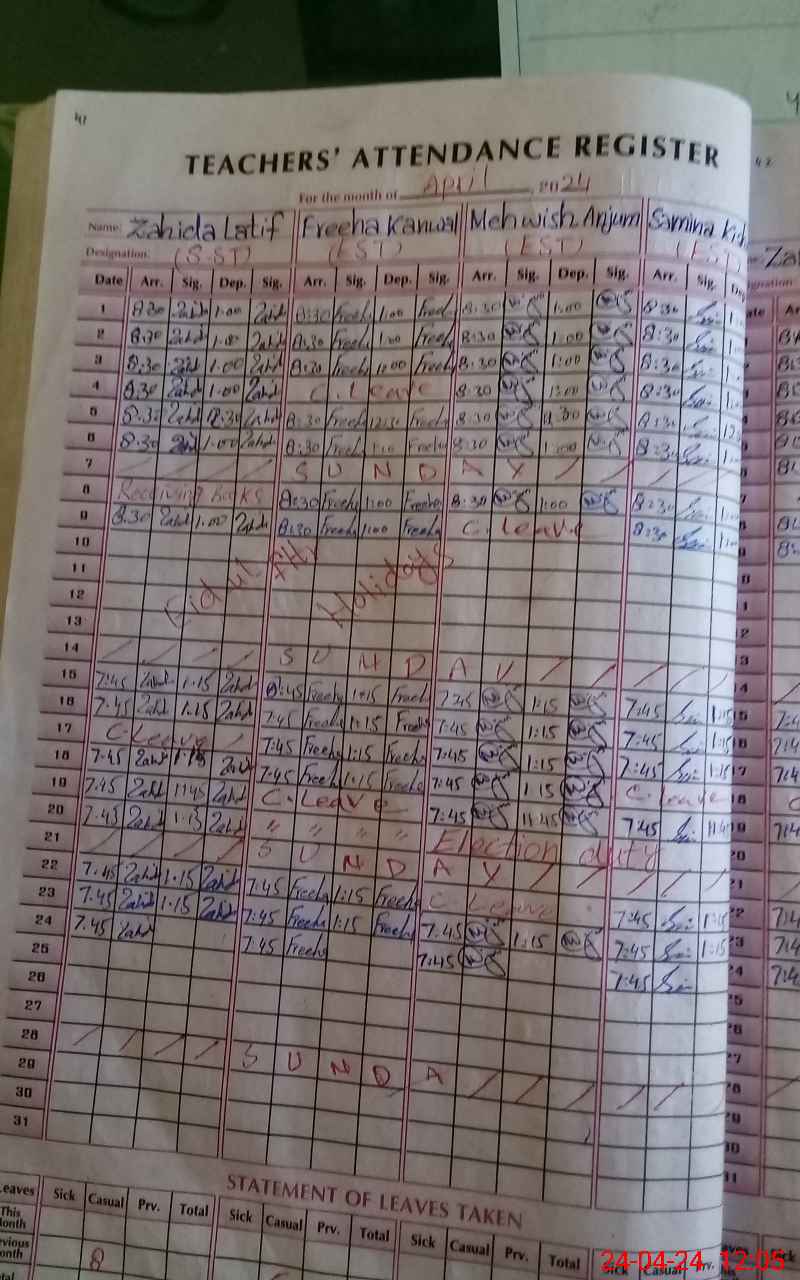 TEACHERS' ATTENDANCE REGISTER
For the month of April, 2024
Name: Zahida Latif Freeha Kanwal Mehwish Anjum Samina
Designation: (S.ST) (EST) (EST) (EST)
Date Arr. Sig. Dep. Sig. Arr. Sig. Dep. Sig. Arr. Sig. Dep. Sig. Arr. Sig.
1 8:30 Zahid 1:00 Zahid 8:30 Freeha 1:00 Freeha 8:30 1:00 8:30
2 8:30 Zahid 1:00 Zahid 8:30 Freeha 1:00 Freeha 8:30 1:00 8:30
3 8:30 Zahid 1:00 Zahid 8:30 Freeha 1:00 Freeha 8:30 1:00 8:30
4 8:30 Zahid 1:00 Zahid C. Leave 8:30 1:00 8:30
5 8:30 Zahid 12:30 Zahid 8:30 Freeha 12:30 Freeha 8:30 8:30
6 8:30 Zahid 1:00 Zahid 8:30 Freeha 1:00 Freeha 8:30 1:00 8:30
7 S U N D A Y
8 Receiving Books 8:30 Freeha 1:00 Freeha 8:30 1:00 8:30
9 8:30 Zahid 1:00 Zahid 8:30 Freeha 1:00 Freeha C. Leave 8:30
10
11 Eid ul Fitr Holidays
12
13
14 S U N D A Y
15 7:45 Zahid 1:15 Zahid :45 Freeha 1:15 Freeha 7:45 1:15 7:45 1:15
16 7:45 Zahid 1:15 Zahid 7:45 Freeha 1:15 Freeha 7:45 1:15 7:45 1:15
17 C. Leave 7:45 Freeha 1:15 Freeha 7:45 1:15 7:45 1:15
18 7:45 Zahid 1:15 Zahid 7:45 Freeha 1:15 Freeha 7:45 1:15 C. Leave
19 7:45 Zahid 11:45 Zahid C. Leave 7:45 11:45 7:45 11:4
20 7:45 Zahid 1:15 Zahid " " " " Election duty
21 S U N D A Y
22 7:45 Zahid 1:15 Zahid 7:45 Freeha 1:15 Freeha C. Leave 7:45 1:15
23 7:45 Zahid 1:15 Zahid 7:45 Freeha 1:15 Freeha 7:45 1:15 7:45 1:15
24 7:45 Zahid 7:45 Freeha 7:45 7:45
25
26
27
28 S U N D A
29
30
31
STATEMENT OF LEAVES TAKEN
Leaves Sick Casual Prv. Total Sick Casual Prv. Total Sick Casual Prv. Total Sick Casual
This Month
Previous Month 8
24-04-24 12:05